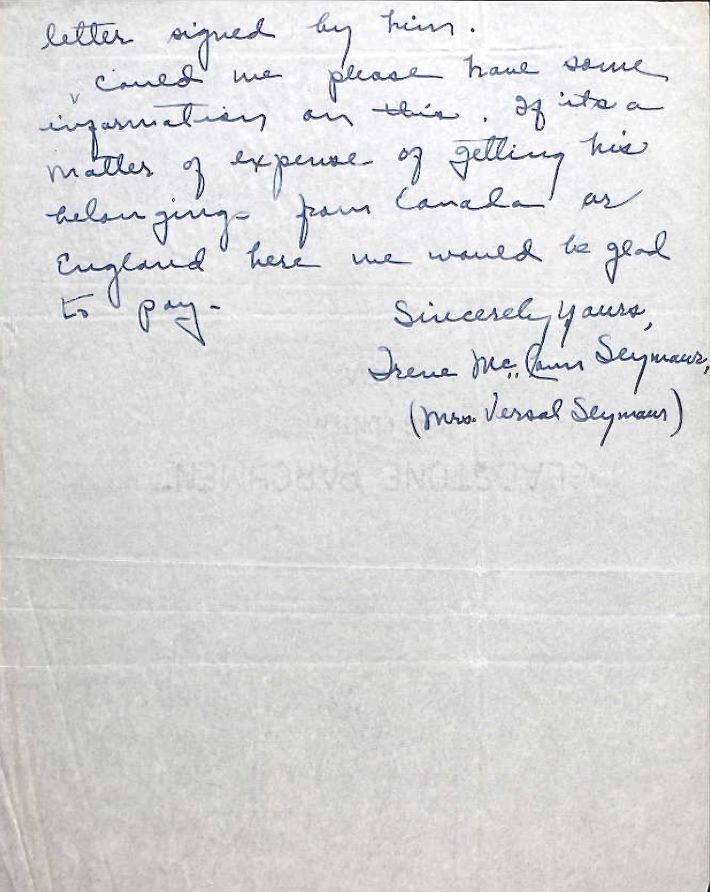 letter signed by him.
Could we please have some
information on this. If its a
matter of expense of getting his
belongings from Canada or
England here we would be glad
to pay.
Sincerely Yours,
Irene Mc.Cann Seymour,
(Mrs. Versal Seymour)
GLADSTONE PARCHMENT